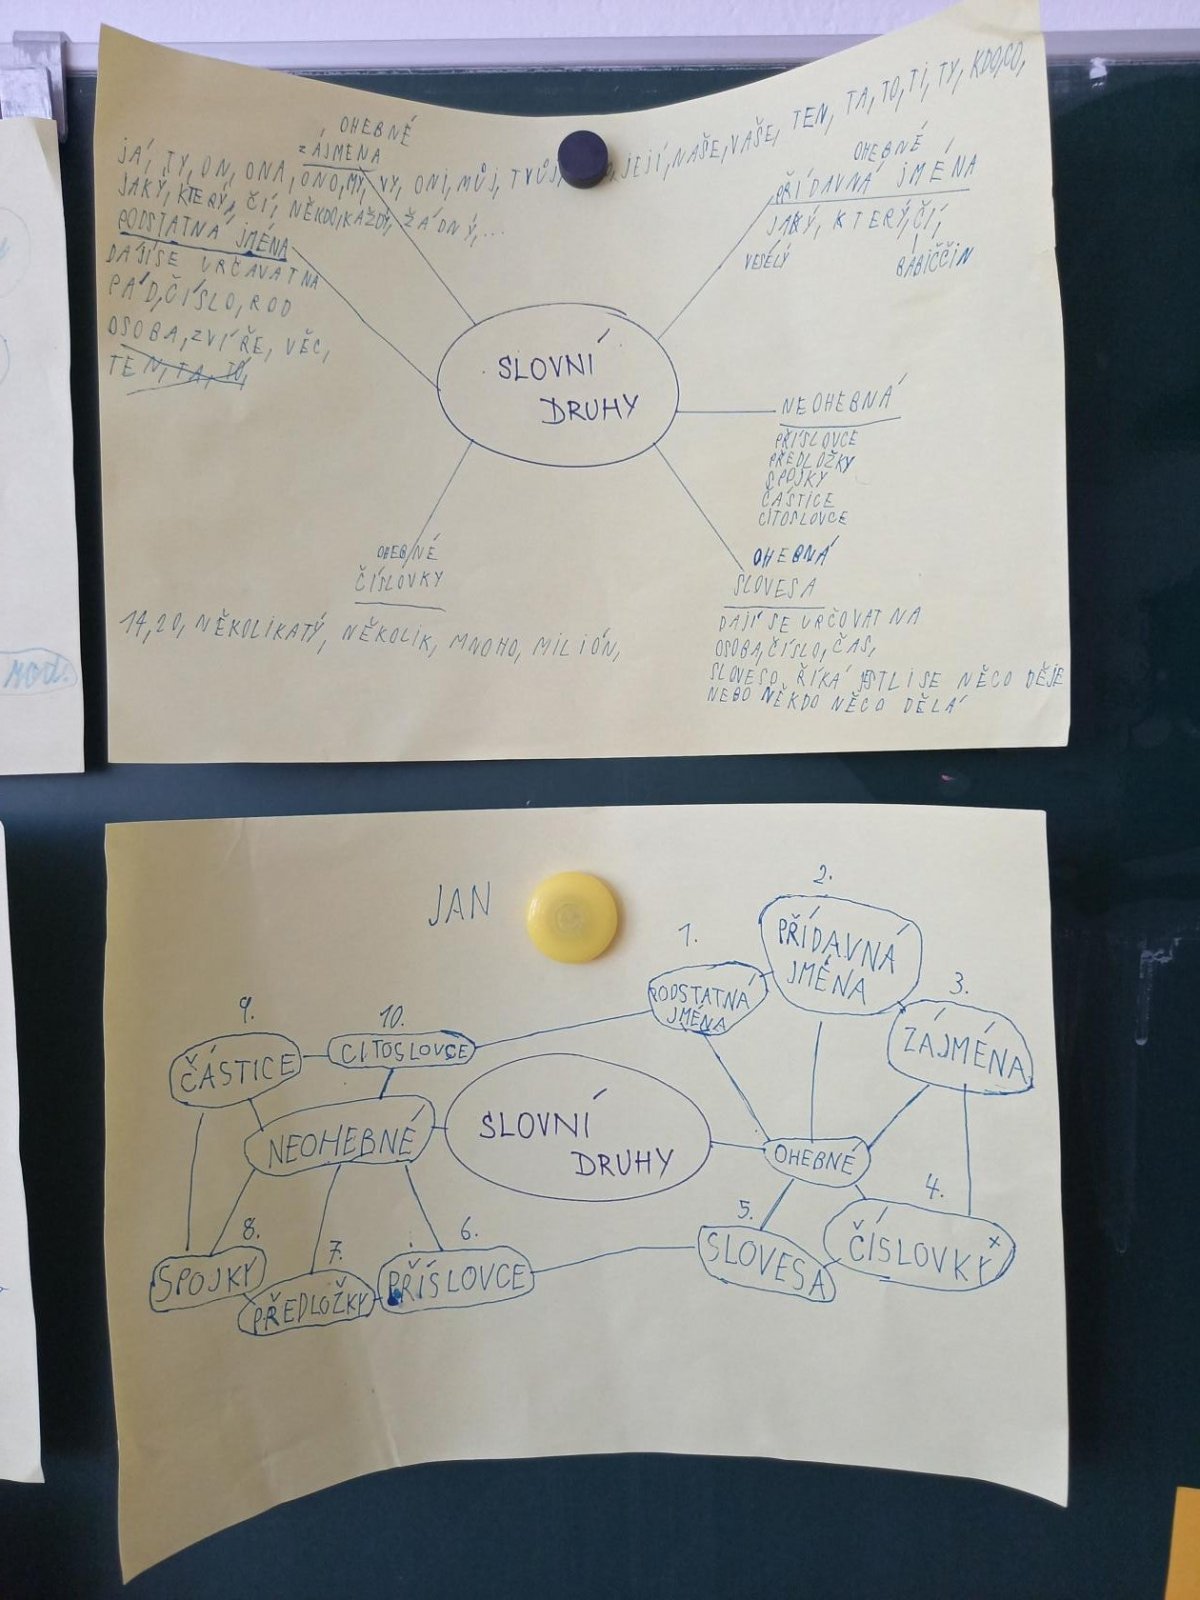 OHEBNÉ
ZÁJMENA
JÁ, TY, ON, ONA, ONO, MY, VY, ONI, MŮJ, TVŮJ, JEJÍ, NAŠE, VAŠE, TEN, TA, TO, TI, TY, KDO, CO,
JAKÝ, KTERÝ, ČÍ, NĚKDO, KAŽDÝ, ŽÁDNÝ,...
PODSTATNÁ JMÉNA
DAJÍ SE URČAVAT NA
PÁD, ČÍSLO, ROD
OSOBA, ZVÍŘE, VĚC,
TEN, TA, TO,
OHEBNÉ
PŘÍDAVNÁ JMÉNA
JAKÝ, KTERÝ, ČÍ,
VESELÝ
BABIČČIN
SLOVNÍ
DRUHY
NEOHEBNÁ
PŘÍSLOVCE
PŘEDLOŽKY
SPOJKY
ČÁSTICE
CITOSLOVCE
OHEBNÉ
ČÍSLOVKY
14, 20, NĚKOLIKATÝ, NĚKOLIK, MNOHO, MILIÓN,
OHEBNÁ
SLOVESA
DAJÍ SE URČOVAT NA
OSOBA, ČÍSLO, ČAS,
SLOVESO ŘÍKÁ JESTLI SE NĚCO DĚJE
NEBO NĚKDO NĚCO DĚLÁ
JAN
1.
PODSTATNÁ
JMÉNA
2.
PŘÍDAVNÁ
JMÉNA
3.
ZÁJMÉNA
9.
ČÁSTICE
10.
CITOSLOVCE
NEOHEBNÉ
SLOVNÍ
DRUHY
OHEBNÉ
4.
ČÍSLOVKY
5.
SLOVESA
6.
PŘÍSLOVCE
7.
PŘEDLOŽKY
8.
SPOJKY